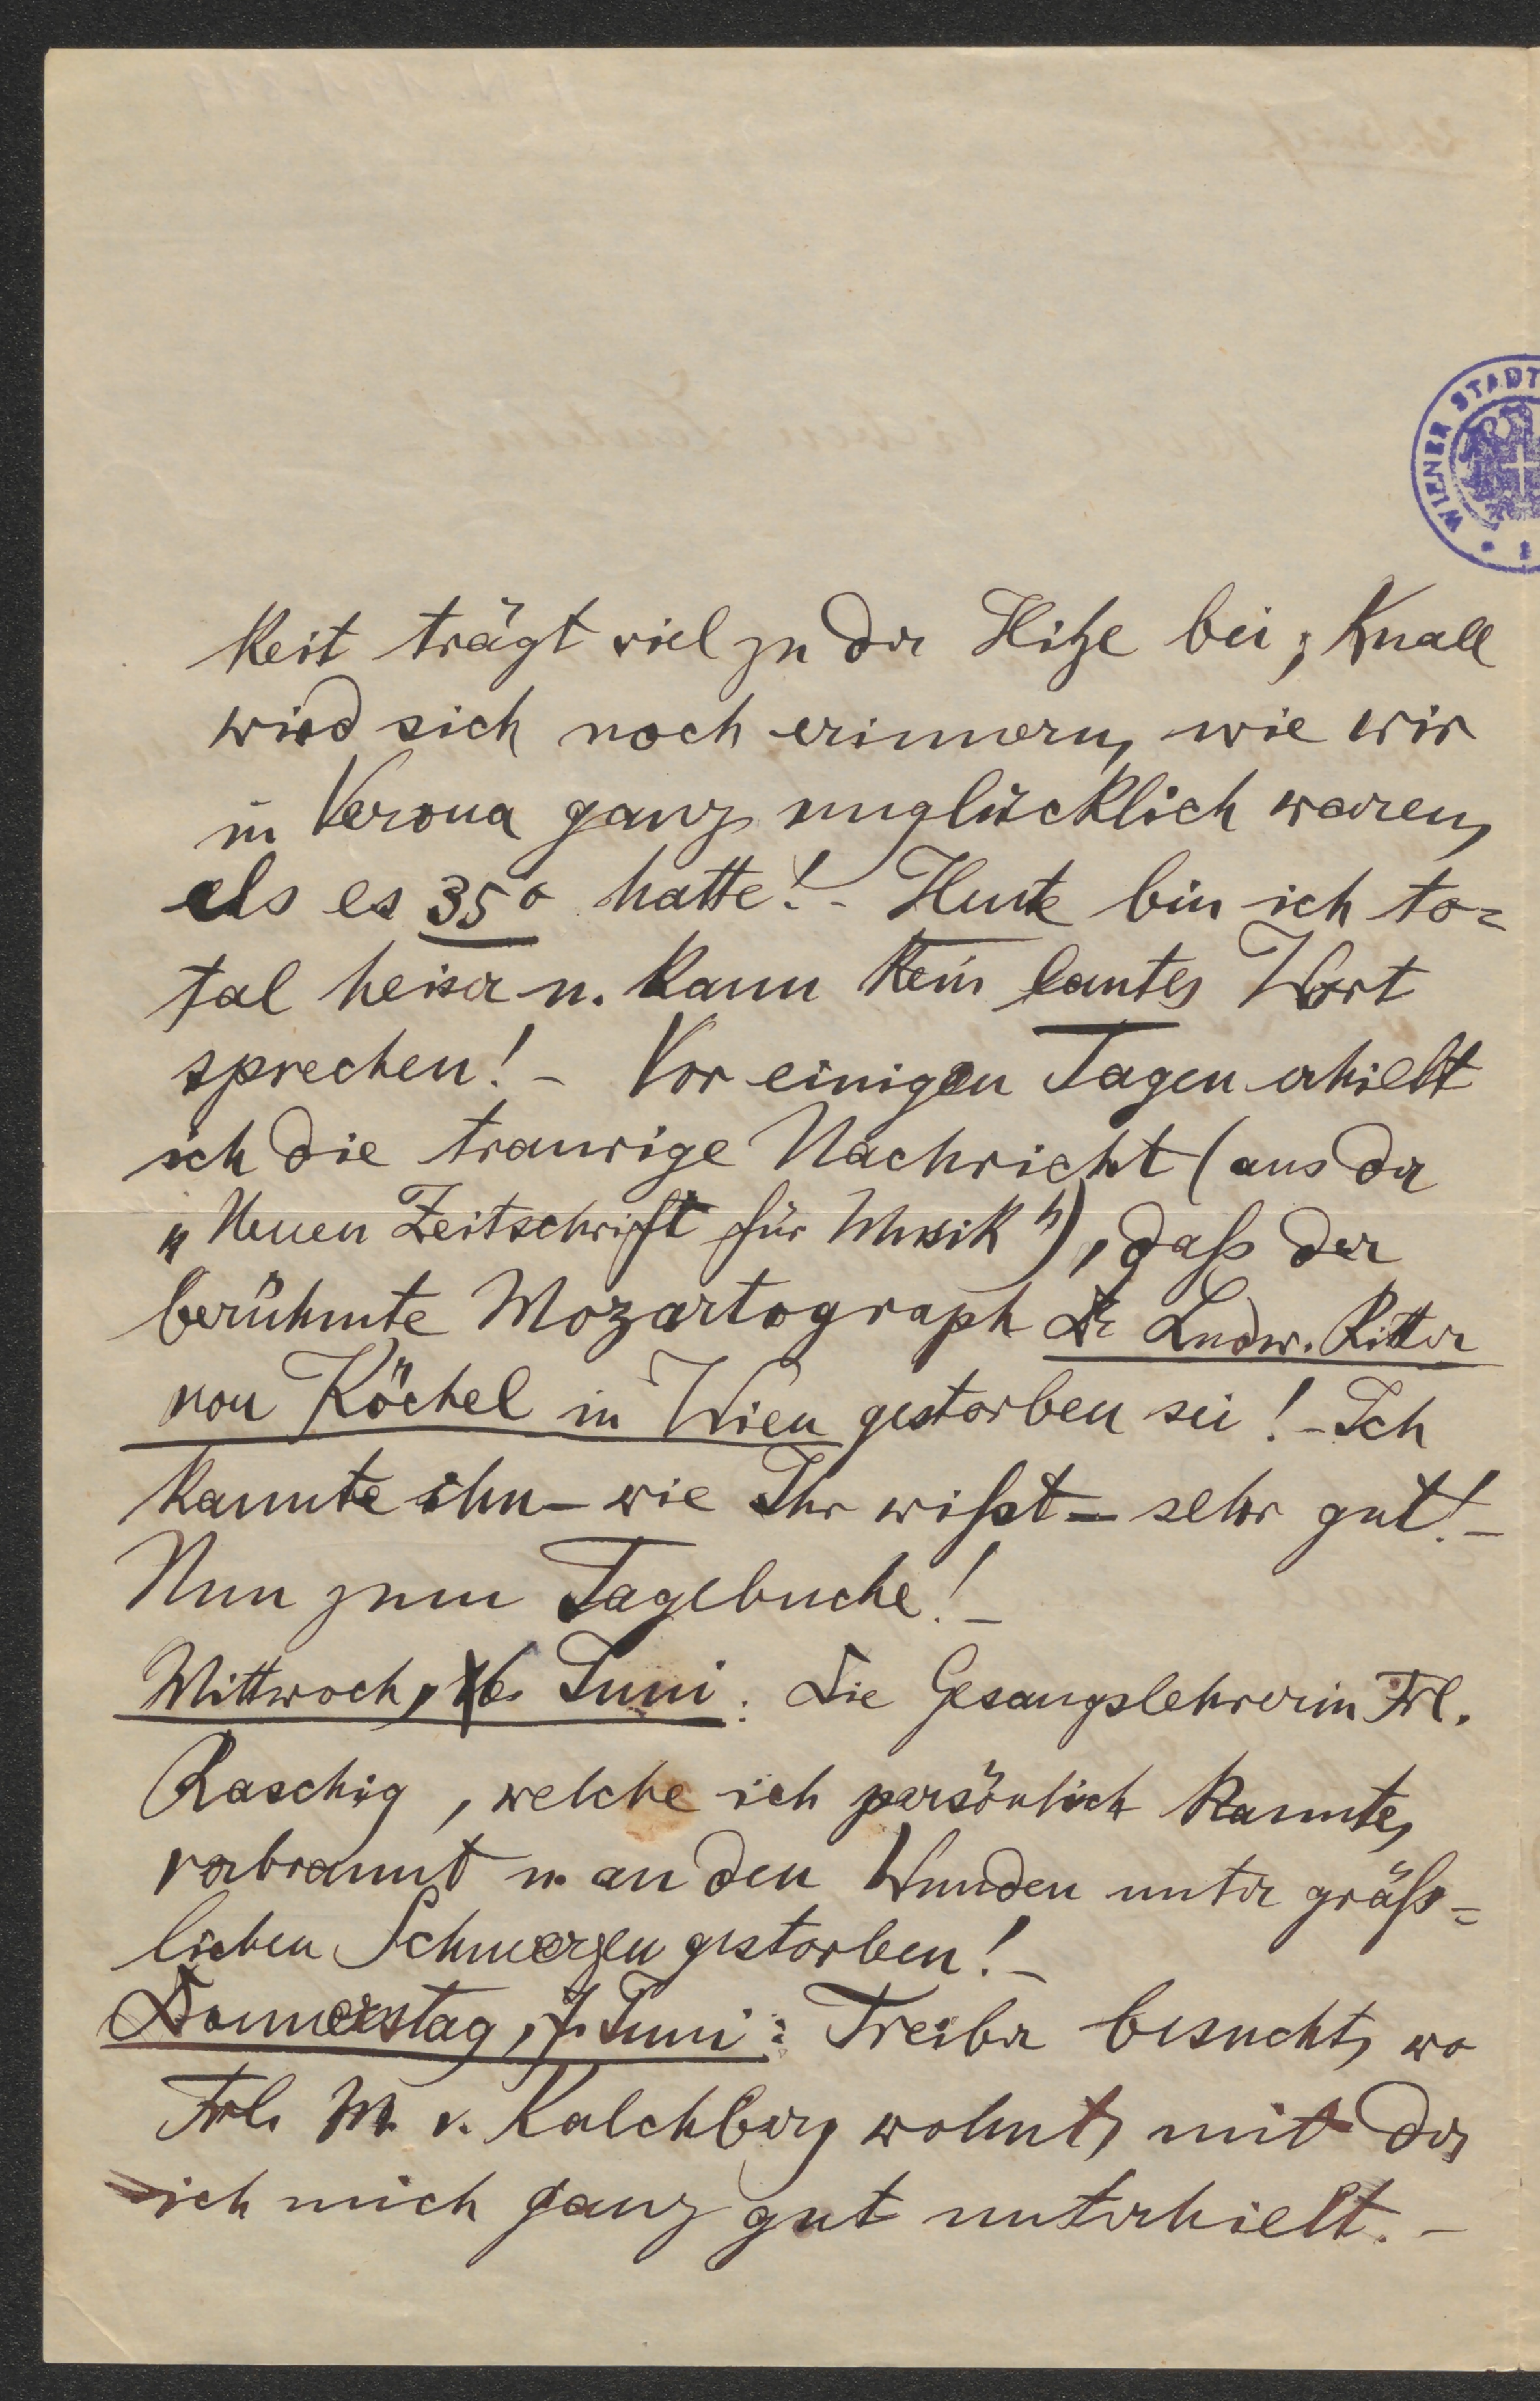 WIENER STADT
keit trägt viel zu der Hitze bei; Knall
wird sich noch erinnern, wie wir
in Verona ganz unglücklich waren,
als es 35° hatte! - Heute bin ich to=
tal heiser u. kann kein lautes Wort
sprechen! - Vor einigen Tagen erhielt
ich die traurige Nachricht (aus der
"Neuen Zeitschrift für Musik"), daß der
berühmte Mozartograph Dr Ludw. Ritter
von Köchel in Wien gestorben sei! - Ich
kannte ihn - wie Ihr wißt - sehr gut! -
Nun zum Tagebuche! -
Mittwoch, 6. Juni: Die Gesangslehrerin Frl.
Raschig, welche ich persönlich kannte,
verbrannt u. an den Wunden unter gräß=
lichen Schmerzen gestorben! -
Donnerstag, 7. Juni: Treiber besucht, wo
Frl. M. v. Kalchberg wohnt, mit der
ich mich ganz gut unterhielt. -